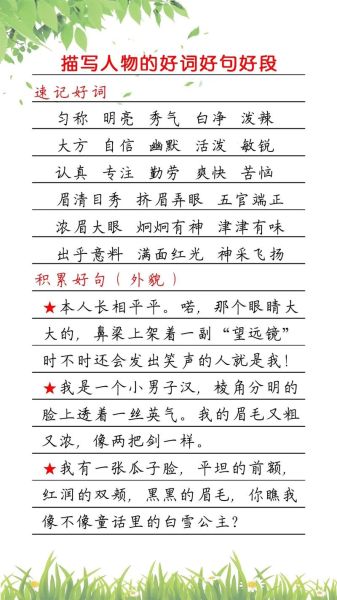 描写人物的好词好句好段
速记好词
匀称 明亮 秀气 白净 泼辣
大方 自信 幽默 活泼 敏锐
认真 专注 勤劳 爽快 苦恼
眉清目秀 挤眉弄眼 五官端正
浓眉大眼 炯炯有神 津津有味
出乎意料 满面红光 神采飞扬
积累好句（外貌）
★本人长相平平。喏，那个眼睛大
大的，鼻梁上架着一副“望远镜”
时不时还会发出笑声的人就是我！
★我是一个小男子汉，棱角分明的
脸上透着一丝英气。我的眉毛又粗
又浓，像两把剑一样。
★我有一张瓜子脸，平坦的前额，
红润的双颊，黑黑的眉毛，你瞧我
像不像童话里的白雪公主？